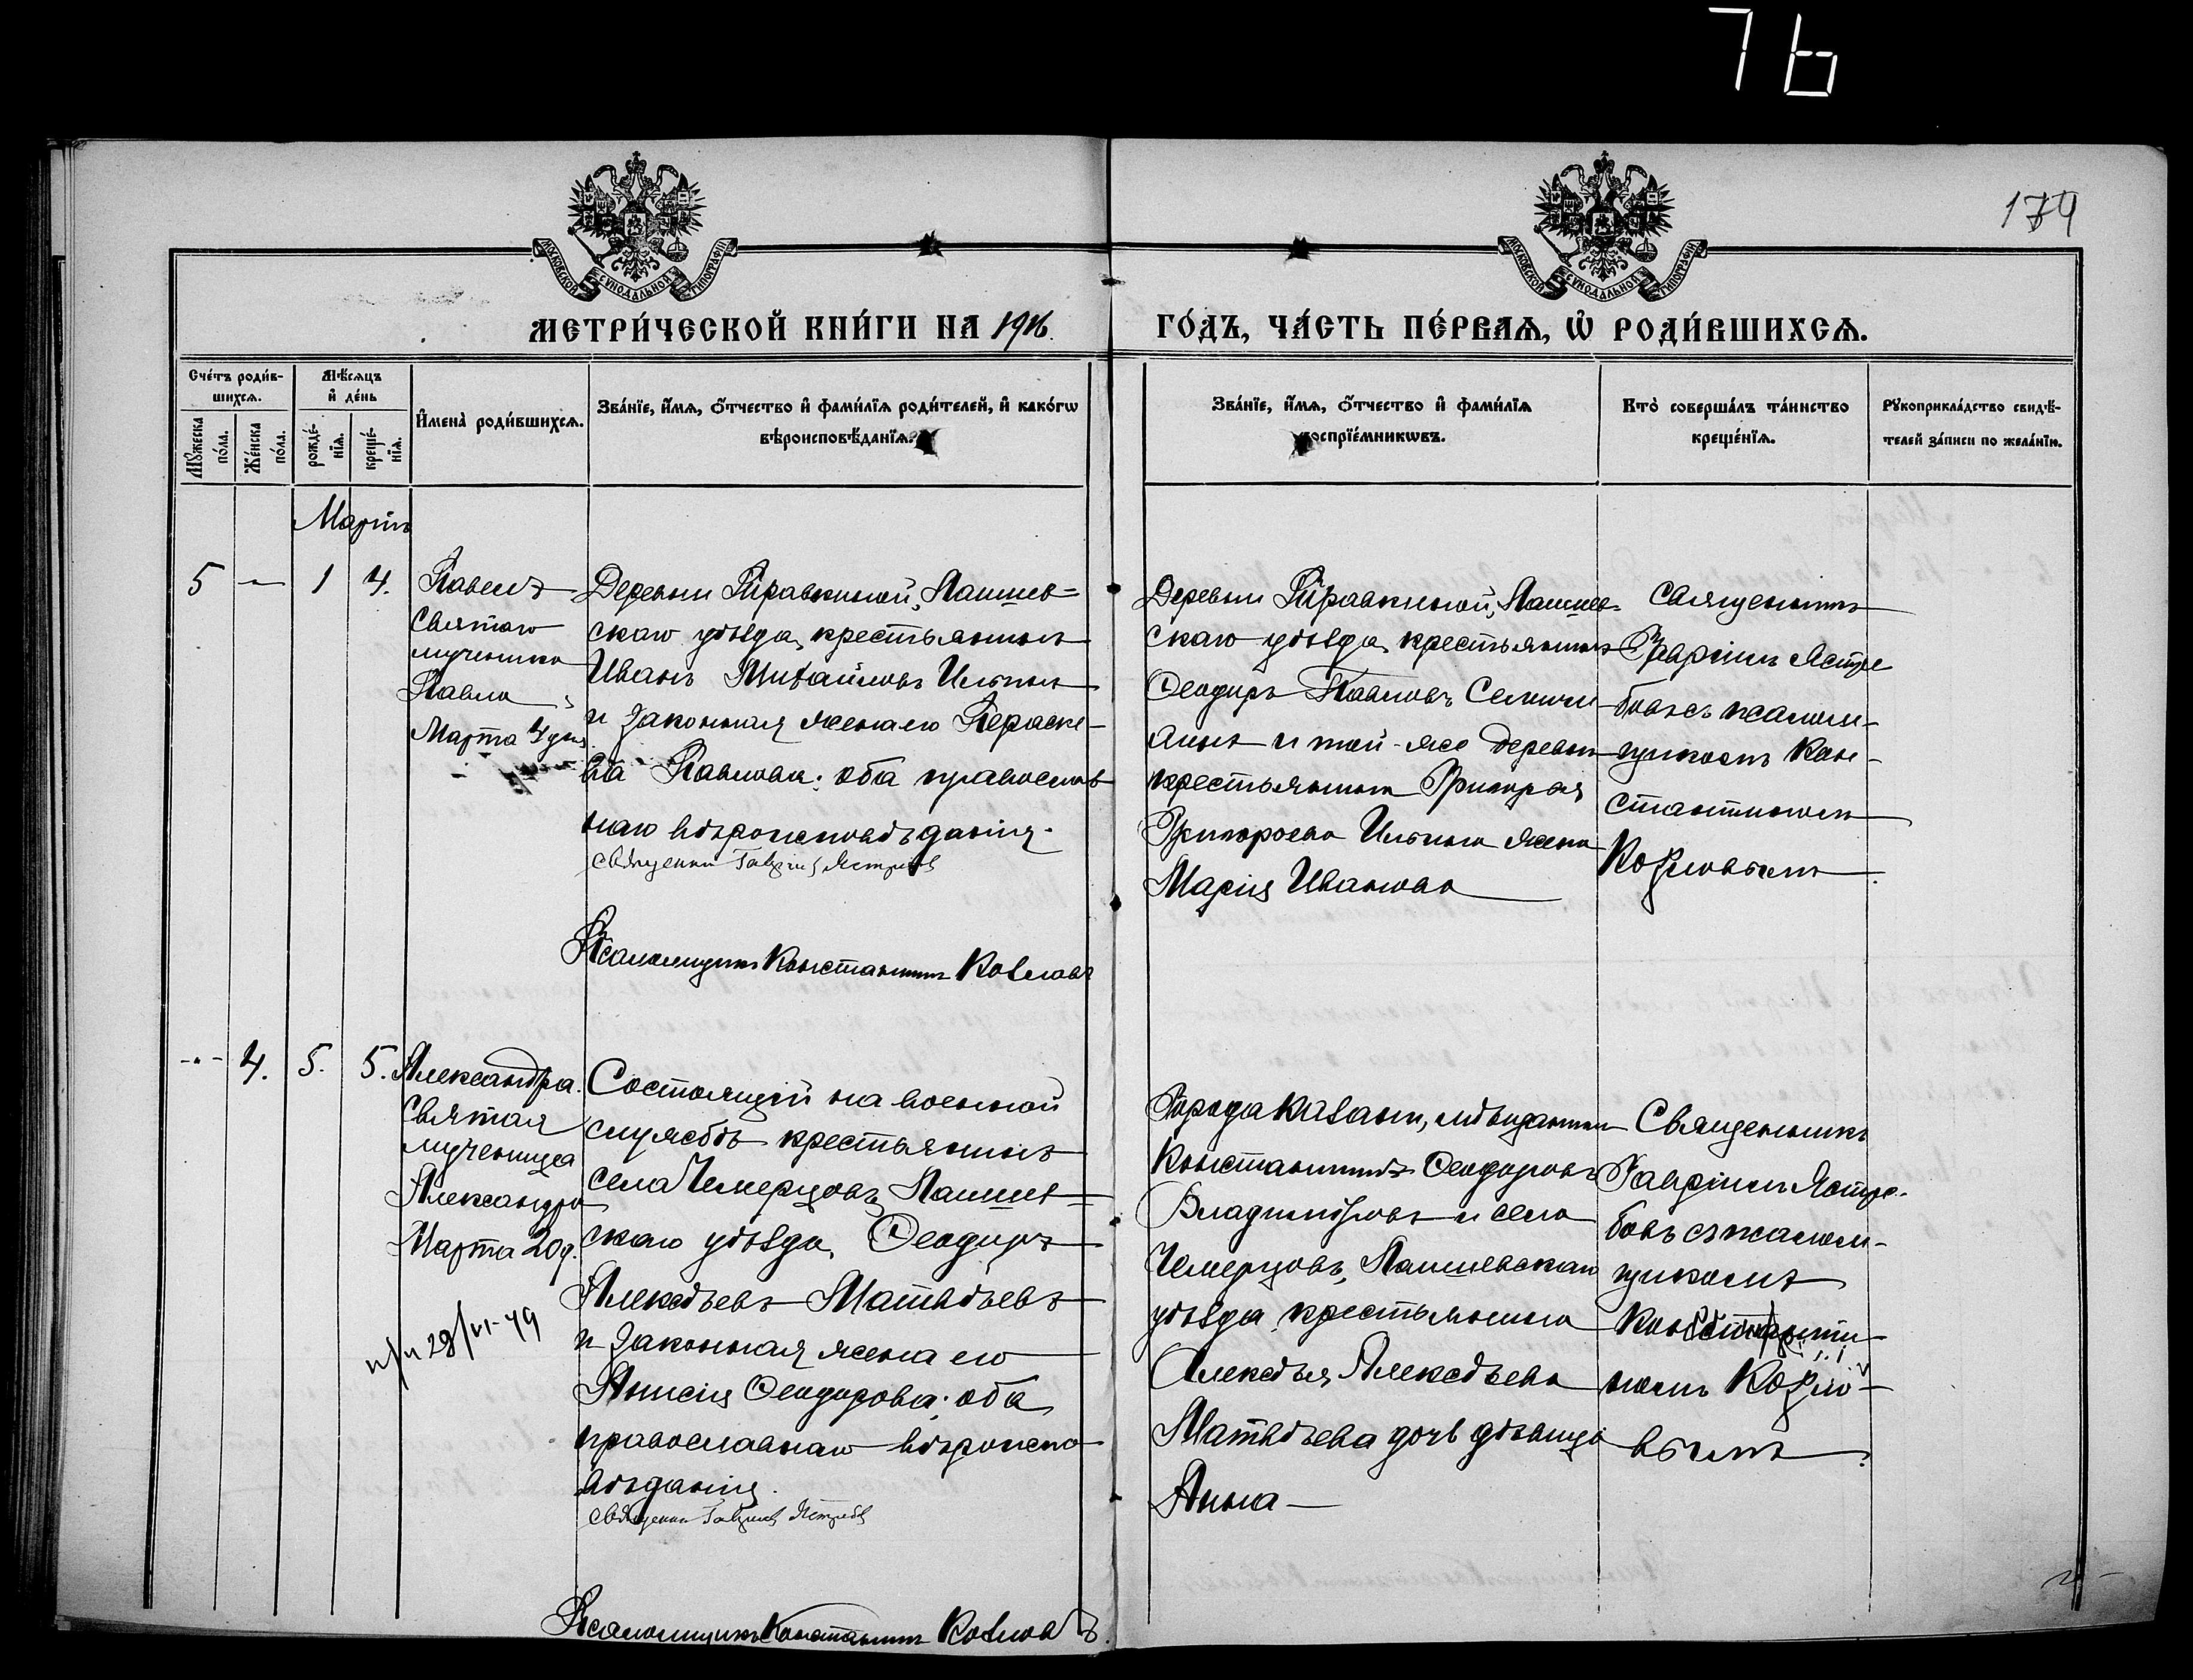 76
179
МОСКОВСКОЙ СѴНОДАЛЬНОЙ ТИПОГРАФІИ
МОСКОВСКОЙ СѴНОДАЛЬНОЙ ТИПОГРАФІИ
МЕТРИ́ЧЕСКОЙ КНИ́ГИ НА 1916. ГО́ДЪ, ЧА́СТЬ ПЕ́РВАѦ, Ѡ҆ РОДИ́ВШИХСѦ.
Сче́тъ роди́в-
шихсѧ.
Мꙋжеска по́ла.
Же́нска по́ла.
Мѣ́сѧцъ
и҆ де́нь
рожде́-
нїѧ.
креще́-
нїѧ.
И҆мена̀ роди́вшихсѧ.
Зва́нїе, и҆́мѧ, ѻ҆́тчество и҆ фами́лїѧ роди́телей, и҆ како́гѡ
вѣроисповѣ́данїѧ.
Зва́нїе, и҆́мѧ, ѻ҆́тчество и҆ фами́лїѧ
воспрїе́мникѡвъ.
Кто̀ соверша́лъ та́инство
креще́нїѧ.
Рꙋкоприкла́дство свидѣ́-
телей за́писи по жела́нїю.
Мартъ
5 — 1 4.
Павелъ
Святаго
мученика
Павла
Марта 4 дня
Деревни Травкиной, Лаишев=
скаго уѣзда, крестьянинъ
Иванъ Михайловъ Ильинъ
и законная жена его Параске-
ва Павлова; оба православ
наго вѣроисповѣданія.
Священни Гавріил Ястребов
Псаломщикъ Константинъ Козловъ
Деревни Травкиной, Лаишев-
скаго уѣзда, крестьянинъ
Ѳеодоръ Павловъ
и той-же деревни
крестьянина Григорія
Григорьева Ильина жена
Марія Иванова
Священникъ
Гавріилъ Ястре
бовъ съ псалом-
щикомъ Кон-
стантиномъ
Козловымъ.
— 4. 5. 5.
Александра.
Святая
мученица
Александра
Марта 20 д.
28/VI-49
Состоящій на военной
службѣ крестьянинъ
села Чемерцовъ, Лаишев=
скаго уѣзда, Ѳеодоръ
Алексѣевъ Матвѣевъ
и законная жена его
Анисія Ѳеодорова; оба
православнаго вѣроиспо-
вѣданія.
Священни Гавріил Ястребов
Псаломщикъ Константинъ Козловъ.
Города Казани, мѣщанинъ
Константинъ Ѳеодоровъ
Владиміровъ и села
Чемерцовъ, Лаишевскаго
уѣзда, крестьянина
Алексѣя Алексѣева
Матвѣева дочь дѣвица
Анна —
Священникъ
Гавріилъ Ястре-
бовъ съ псалом-
щикомъ
Константи-
номъ Козло-
вымъ.